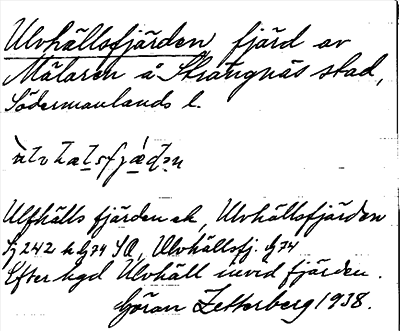 Ulvhällsfjärden, fjärd av
Mälaren å Strängnäs stad,
Södermanlands l.
Ulfhälls fjärden ek, Ulvhällsfjärden
hg74 SA, Ulvhällsfj. hg74
Efter hgd Ulvhäll invid fjärden.
Göran Zetterberg 1938.